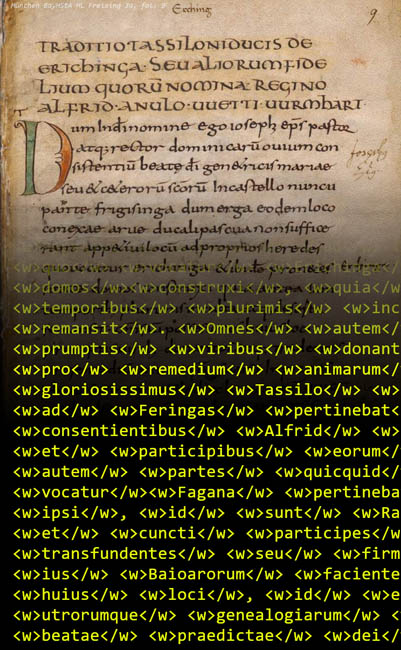 München BayHStA HL Freising 3a, fol. 9
Ecching
9
TRADITIO TASSILONI DUCIS DE
ERICHINGA. SEU ALIORUM FIDE
LIUM QUORŪ NOMINA REGINO
ALFRID. ANULO. UUETTI UURMHART.
Dum Indi nomine ego ioseph ep̄s pastor
atq; rector dominicarū ouium con
sistentiū beate dī genetricis mariae
seu & ceterorū scorū In castello nuncu
pante frigisinga dum erga eodem loco
conexae arue ducali pascua non suffice
rant appetiui locū ad proprios heredes
<w>domos</w> <w>construxi</w> <w>quia</w>
<w>temporibus</w> <w>plurimis</w> <w>inc
<w>remansit</w>. <w>Omnes</w> <w>autem</
<w>prumptis</w> <w>viribus</w> <w>donant
<w>pro</w> <w>remedium</w> <w>animarum</
<w>gloriosissimus</w> <w>Tassilo</w> <w>
<w>ad</w> <w>Feringas</w> <w>pertinebat<
<w>consentientibus</w> <w>Alfrid</w> <w>
<w>et</w> <w>participibus</w> <w>eorum</
<w>autem</w> <w>partes</w> <w>quicquid</
<w>vocatur</w><w>Fagana</w> <w>pertineba
<w>ipsi</w>, <w>id</w> <w>sunt</w> <w>Ra
<w>et</w> <w>cuncti</w> <w>participes</w
<w>transfundentes</w> <w>seu</w> <w>firm
<w>ius</w> <w>Baioarorum</w> <w>faciente
<w>huius</w> <w>loci</w>, <w>id</w> <w>e
<w>utrorumque</w> <w>genealogiarum</w> <
<w>beatae</w> <w>praedictae</w> <w>dei</w